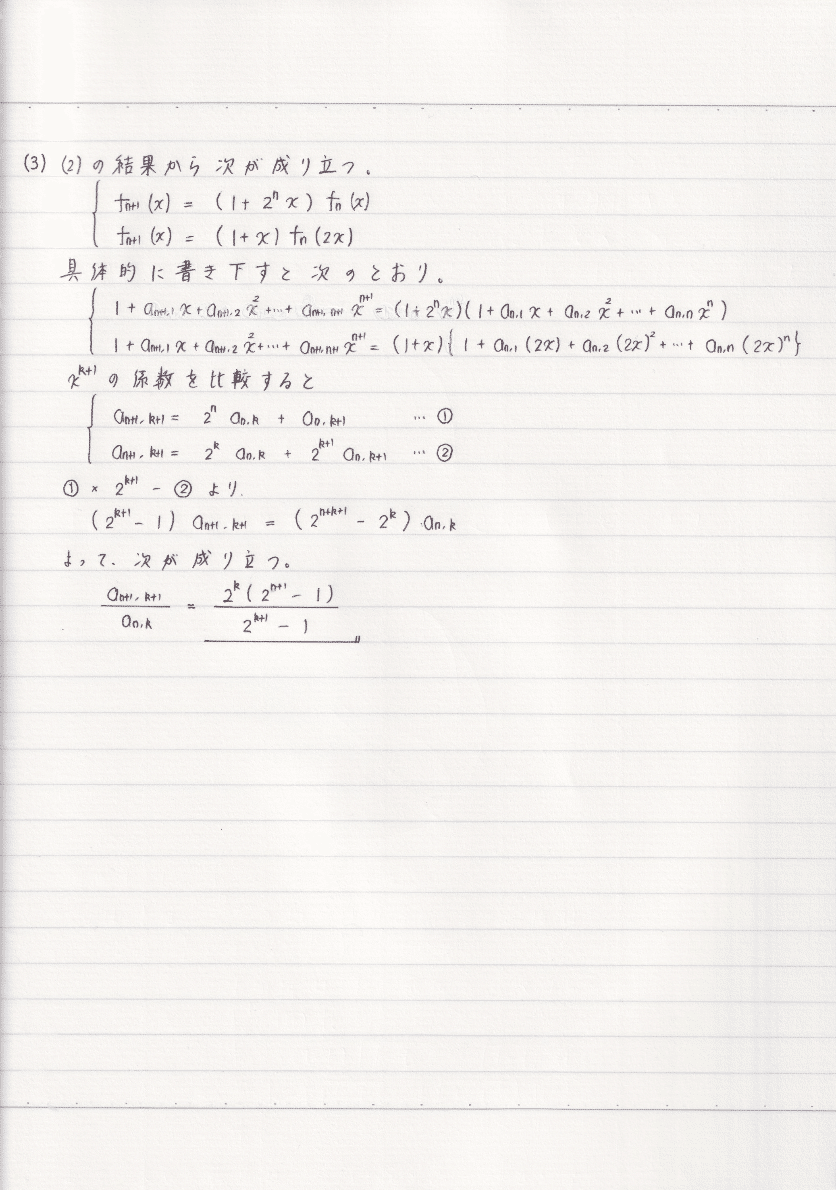 (3) (2)の結果から次が成り立つ。
{ fₙ₊₁(x) = (1 + 2ⁿx) fₙ(x)
fₙ₊₁(x) = (1 + x) fₙ(2x)
具体的に書き下すと次のとおり。
{ 1 + aₙ₊₁,₁ x + aₙ₊₁,₂ x² + … + aₙ₊₁,ₙ₊₁ xⁿ⁺¹ = (1 + 2ⁿx)(1 + aₙ,₁ x + aₙ,₂ x² + … + aₙ,ₙ xⁿ)
1 + aₙ₊₁,₁ x + aₙ₊₁,₂ x² + … + aₙ₊₁,ₙ₊₁ xⁿ⁺¹ = (1 + x){1 + aₙ,₁ (2x) + aₙ,₂ (2x)² + … + aₙ,ₙ (2x)ⁿ}
xᵏ⁺¹ の係数を比較すると
{ aₙ₊₁,ₖ₊₁ = 2ⁿ aₙ,ₖ + aₙ,ₖ₊₁ … ①
aₙ₊₁,ₖ₊₁ = 2ᵏ aₙ,ₖ + 2ᵏ⁺¹ aₙ,ₖ₊₁ … ②
① × 2ᵏ⁺¹ - ② より、
(2ᵏ⁺¹ - 1) aₙ₊₁,ₖ₊₁ = (2ⁿ⁺ᵏ⁺¹ - 2ᵏ) aₙ,ₖ
よって、次が成り立つ。
aₙ₊₁,ₖ₊₁ / aₙ,ₖ = 2ᵏ(2ⁿ⁺¹ - 1) / 2ᵏ⁺¹ - 1